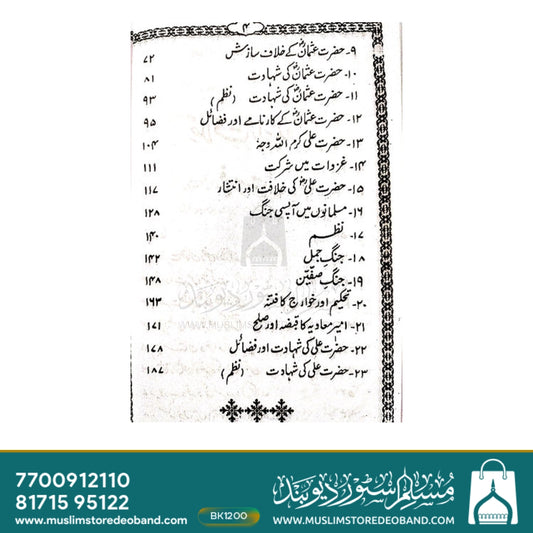 ۴
۹- حضرت عثمانؓ کے خلاف سازش ۷۲
۱۰- حضرت عثمانؓ کی شہادت ۸۱
۱۱- حضرت عثمانؓ کی شہادت (نظم) ۹۳
۱۲- حضرت عثمانؓ کے کارنامے اور فضائل ۹۵
۱۳- حضرت علی کرم اللہ وجہہ ۱۰۴
۱۴- غزوات میں شرکت ۱۱۱
۱۵- حضرت علیؓ کی خلافت اور انتشار ۱۱۷
۱۶- مسلمانوں میں آپسی جنگ ۱۲۸
۱۷- نظم ۱۴۰
۱۸- جنگِ جمل ۱۴۲
۱۹- جنگِ صفین ۱۴۸
۲۰- تحکیم اور خوارج کا فتنہ ۱۶۳
۲۱- امیر معاویہ کا قبضہ اور صلح ۱۷۱
۲۲- حضرت علی کی شہادت اور فضائل ۱۷۸
۲۳- حضرت علی کی شہادت (نظم) ۱۸۷
WWW.MUSLIMSTOREDEOBAND.COM
7700912110
81715 95122
www.muslimstoredeoband.com
BK1200
مسلم سٹور دیوبند
WWW.MUSLIMSTOREDEOBAND.COM